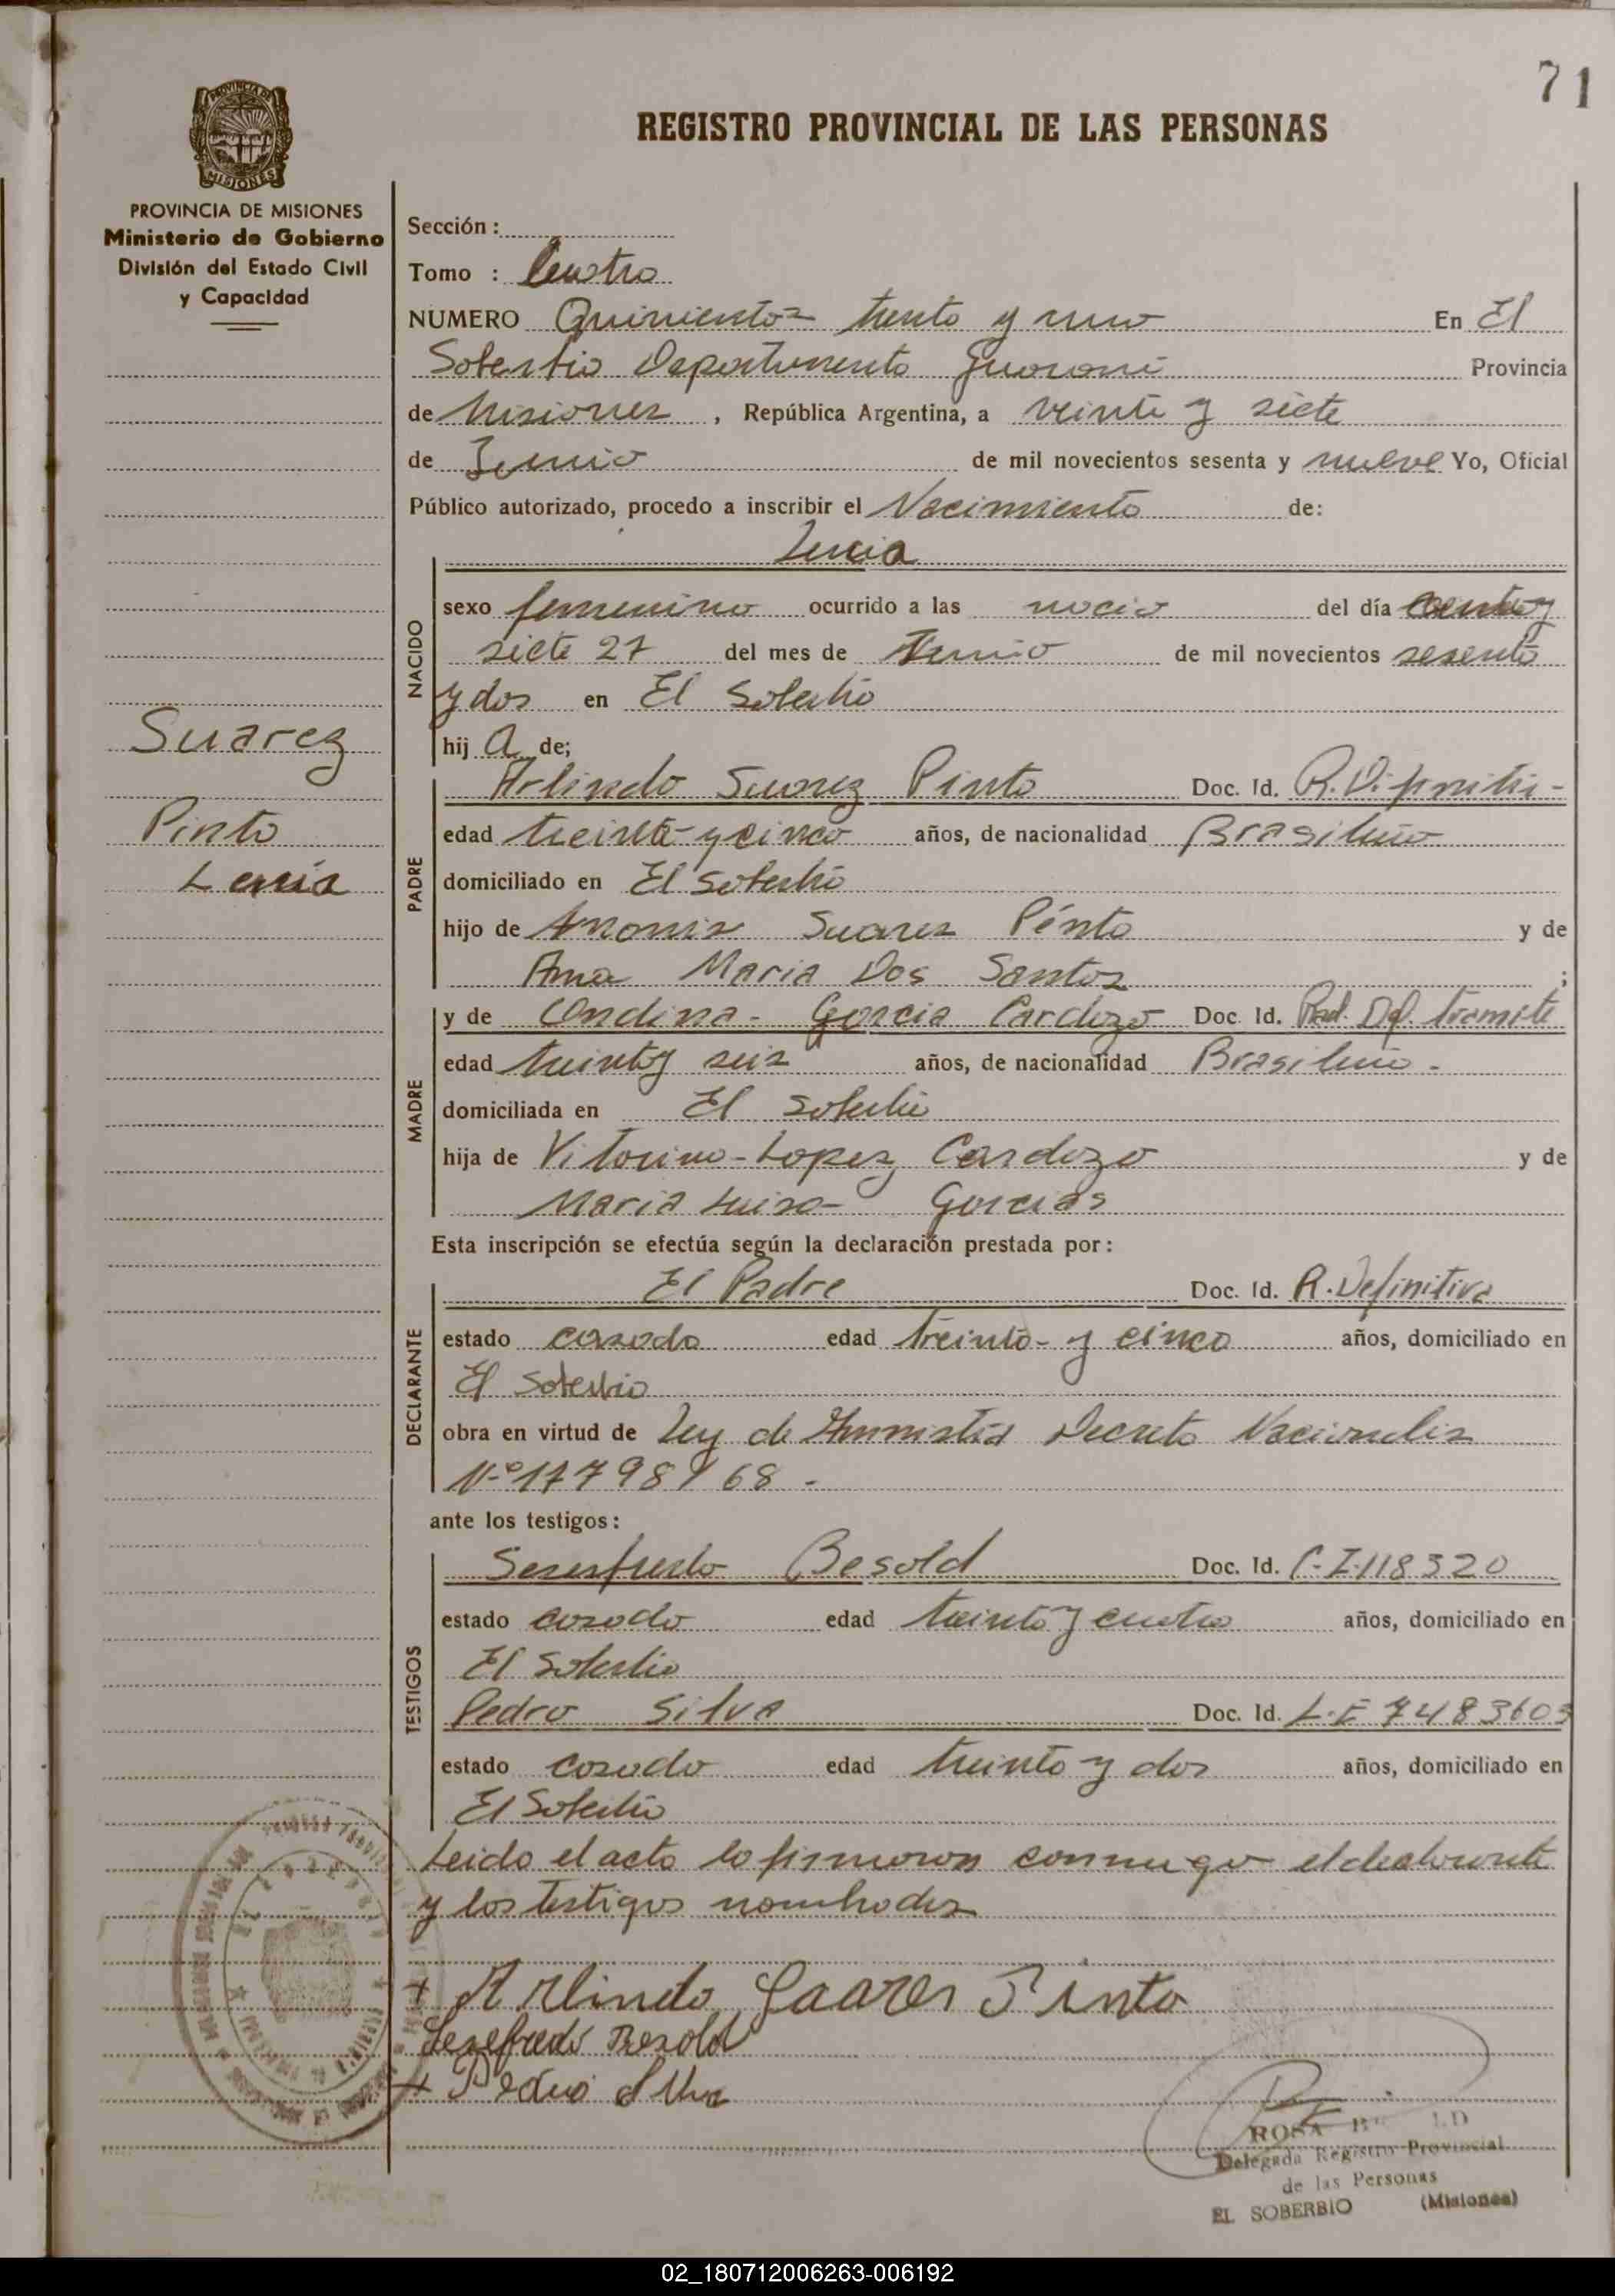 71
REGISTRO PROVINCIAL DE LAS PERSONAS
PROVINCIA DE MISIONES
Ministerio de Gobierno
División del Estado Civil
y Capacidad
Suarez
Pinto
Lucia
Sección:
Tomo : Cuatro
NUMERO Quinientos treinta y uno En El
Soberbio Departamento Guarani Provincia
de Misiones, República Argentina, a veinte y siete
de Junio de mil novecientos sesenta y nueve Yo, Oficial
Público autorizado, procedo a inscribir el Nacimiento de:
Lucia
NACIDO
sexo femenino ocurrido a las del día
siete 27 del mes de Junio de mil novecientos sesenta
y dos en El Soberbio
hij a de;
PADRE
Arlindo Suarez Pinto Doc. Id.
edad treinta y cinco años, de nacionalidad Brasileño
domiciliado en El Soberbio
hijo de Suarez Pinto y de
Ana Maria Dos Santos ;
MADRE
y de Ondina - Garcia Cardozo Doc. Id. Rad. Def. tramite
edad treinta y seis años, de nacionalidad Brasileño -
domiciliada en El Soberbio
hija de Vitorino - Lopez Cardozo y de
Maria Luisa - Garcias
Esta inscripción se efectúa según la declaración prestada por:
DECLARANTE
El Padre Doc. Id. R. Definitiva
estado casado edad treinta - y cinco años, domiciliado en
El Soberbio
obra en virtud de Ley de Amnistia Decreto Nacionales
Nº 17798/68 -
ante los testigos:
TESTIGOS
Besold Doc. Id. C.I. 118320
estado casado edad treinta y cuatro años, domiciliado en
El Soberbio
Pedro Silva Doc. Id. L.E 7483603
estado casado edad treinta y dos años, domiciliado en
El Soberbio
Leida el acta la firmaron conmigo el declarante
y los testigos nombrados
+ Arlindo Soares Pinto
Besold
+ Pedro Silva
ROSA
Delegada Registro Provincial
de las Personas
EL SOBERBIO (Misiones)
02_180712006263-006192